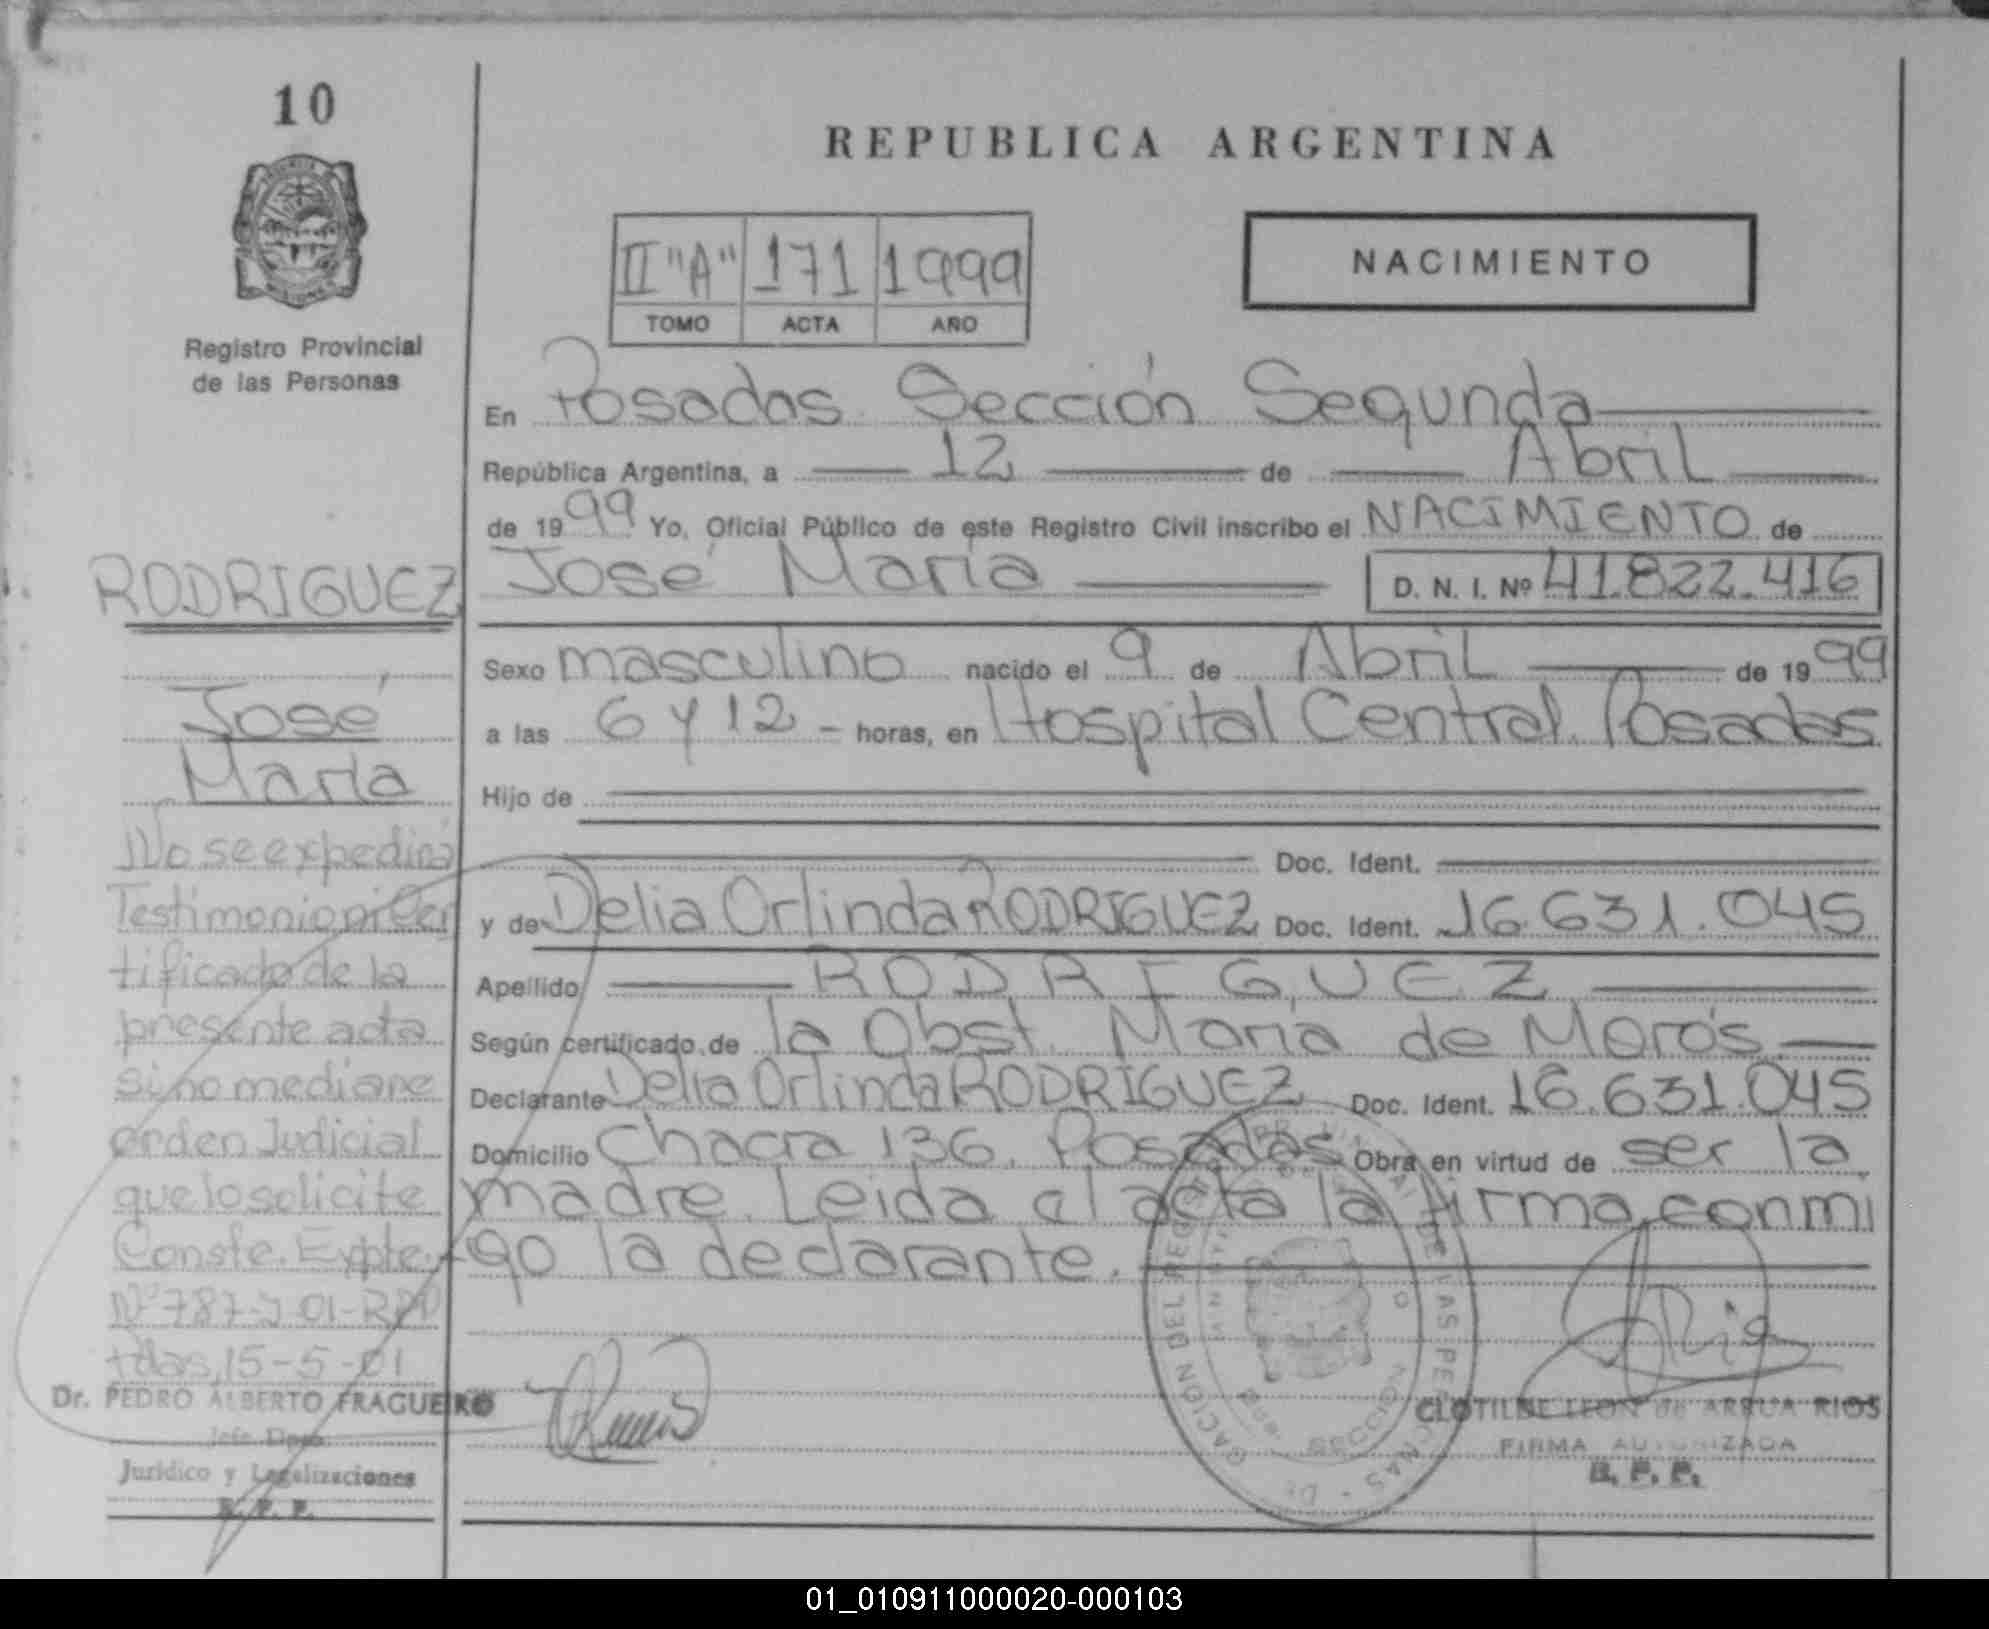 10
REPUBLICA ARGENTINA
II "A" 171 1999
TOMO ACTA AÑO
NACIMIENTO
Registro Provincial
de las Personas
En Posadas Sección Segunda
República Argentina, a 12 de Abril
de 1999 Yo, Oficial Público de este Registro Civil inscribo el NACIMIENTO de
José María D. N. I. Nº 41.822.416
Sexo masculino nacido el 9 de Abril de 1999
a las 6 y 12 - horas, en Hospital Central. Posadas
Hijo de
Doc. Ident.
y de Delia Orlinda RODRIGUEZ Doc. Ident. 16.631.045
Apellido RODRIGUEZ
Según certificado de la Obst. María de Morós
Declarante Delia Orlinda RODRIGUEZ Doc. Ident. 16.631.045
Domicilio Chacra 136. Posadas Obra en virtud de ser la
madre. Leida el acta la firma conmi
go la declarante.
RODRIGUEZ
José
María
No se expedirá
Testimonio ni Cer
tificado de la
presente acta
sino mediane
orden Judicial
que lo solicite
Conste. Expte.
Nº 787-J-01-RPP
Pdas, 15-5-01
Dr. PEDRO ALBERTO FRAGUEIRO
Jefe Dpto.
Jurídico y Legalizaciones
R. P. P.
CLOTILDE LEON de ARRUA RIOS
FIRMA AUTORIZADA
R. P. P.
01_010911000020-000103